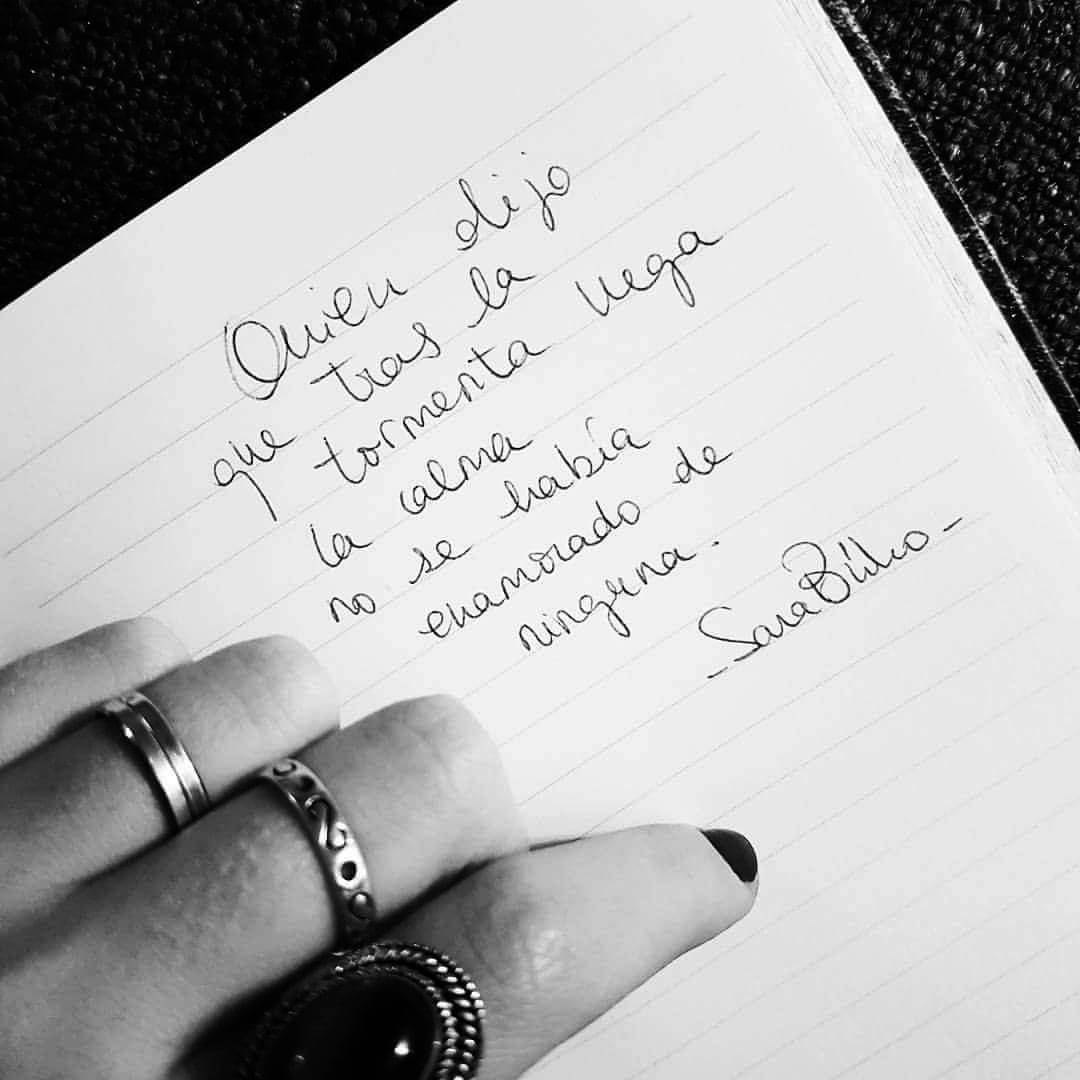 Quien dijo
que tras la
tormenta llega
la calma
no se había
enamorado de
ninguna.
-Sara Búho-